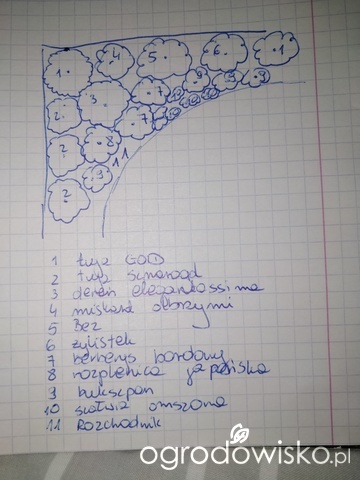 1 4 5 6 1
2 3 7 9 10 9
2 8 7
2 9 11
1 tuja GOL
2 tuja szmaragd
3 dereń elegantissima
4 miskant olbrzymi
5 Bez
6 żylistek
7 berberys bordowy
8 rozplenica japońska
9 bukszpan
10 szałwia omszona
11 Rozchodnik
ogrodowisko.pl